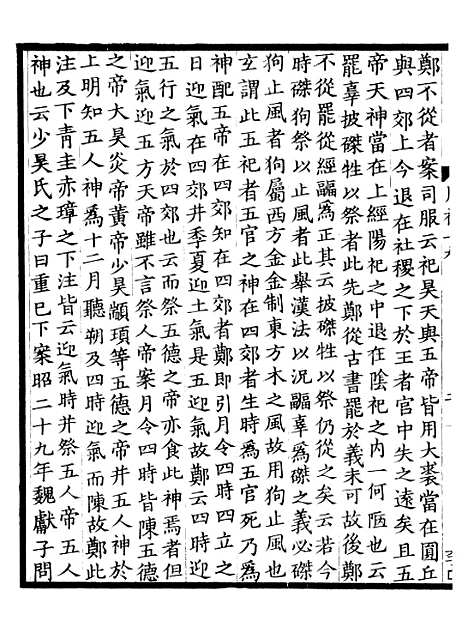 鄭不從者案司服云祀昊天與五帝皆用大裘當在圓丘
與四郊上今退在社稷之下於王者官中失之遠矣且五
帝天神當在上經陽祀之中退在陰祀之內一何陋也云
罷辜披磔牲以祭者此先鄭從古書罷於義未可故後鄭
不從罷從經疈爲正其云披磔牲以祭仍從之矣云若今
時磔狗祭以止風者此舉漢法以況疈辜爲磔之義必磔
狗止風者狗屬西方金金制東方木之風故用狗止風也
玄謂此五祀者五官之神在四郊者生時爲五官死乃爲
神配五帝在四郊知在四郊者鄭即引月令四時四立之
日迎氣在四郊并季夏迎土氣是五迎氣故鄭云四時迎
五行之氣於四郊也云而祭五德之帝亦食此神焉者但
迎氣迎五方天帝雖不言祭人帝案月令四時皆陳五德
之帝大昊炎帝黃帝少昊顓頊等五德之帝并五人神於
上明知五人神爲十二月聽朔及四時迎氣而陳故鄭此
注及下青圭赤璋之下注皆云迎氣時并祭五人帝五人
神也云少昊氏之子曰重已下案昭二十九年魏獻子問